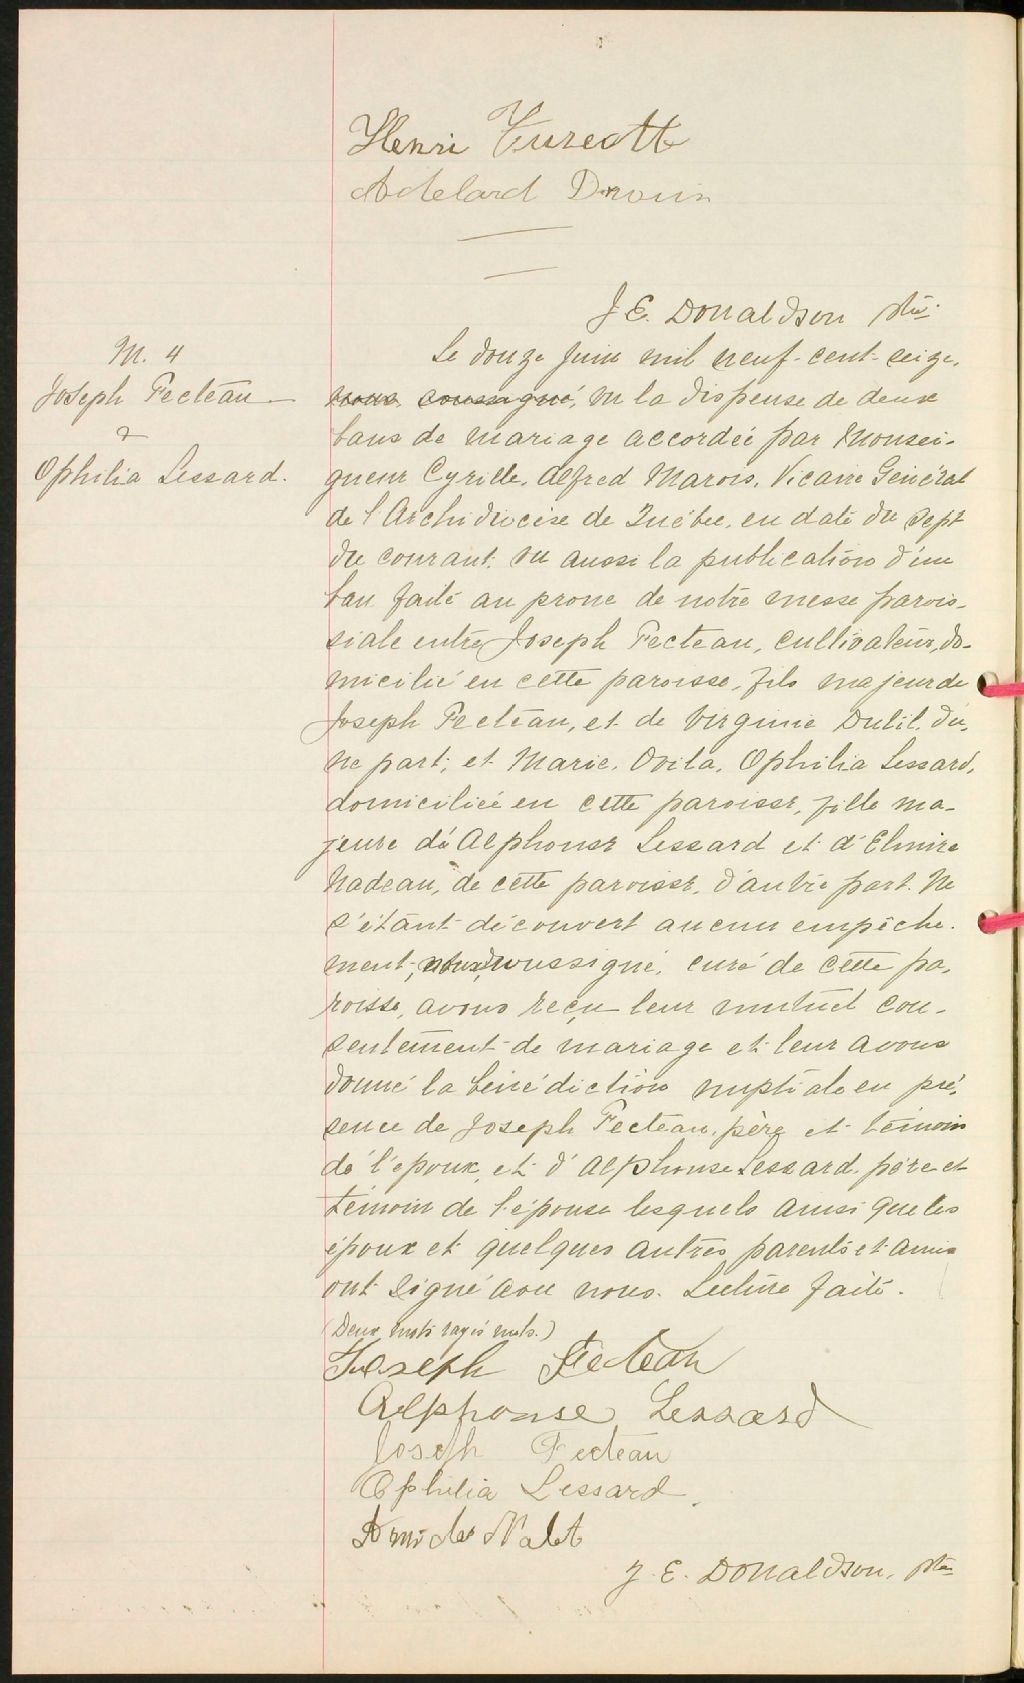 Henri Turcotte
Adelard Drouin
J. E. Donaldson ptre
M. 4
Joseph Fecteau
&
Ophilia Lessard.
Le douze juin mil neuf-cent-seize,
nous soussigné, vu la dispense de deux
bans de mariage accordée par Monsei-
gneur Cyrille, Alfred Marois, Vicaire Général
de l'Archidiocèse de Québec, en date du sept
du courant; vu aussi la publication d'un
ban faite au prone de notre messe parois-
siale entre Joseph Fecteau, cultivateur, do-
micilié en cette paroisse, fils majeur de
Joseph Fecteau, et de Virginie Dulil, d'u-
ne part; et Marie, Ovila, Ophilia Lessard,
domiciliée en cette paroisse, fille ma-
jeure d'Alphonse Lessard et d'Elmire
Nadeau, de cette paroisse, d'autre part. Ne
s'étant découvert aucun empêche-
ment, nous, soussigné, curé de cette pa-
roisse, avons reçu leur mutuel con-
sentement de mariage et leur avons
donné la bénédiction nuptiale en pré-
sence de Joseph Fecteau, père et témoin
de l'époux, et d'Alphonse Lessard, père et
témoin de l'épouse lesquels ainsi que les
époux et quelques autres parents et amis
ont signé avec nous. Lecture faite.
(Deux mots rayés nuls.)
Joseph Fecteau
Alphonse Lessard
Joseph Fecteau
Ophilia Lessard
J. E. Donaldson, ptre